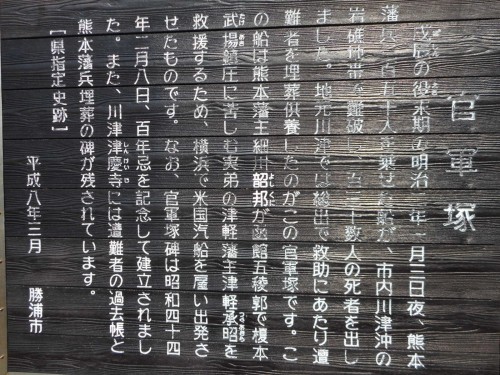 官軍塚
戊辰の役末期の明治二年一月三日夜、熊本
藩兵三百五十人を乗せた船が、市内川津沖の
岩礁地帯で難破し、二百二十数人の死者を出し
ました。地元川津では総出で救助にあたり遭
難者を埋葬供養したのがこの官軍塚です。こ
の船は熊本藩主細川韶邦が函館五稜郭で榎本
武揚鎮圧に苦しむ実弟の津軽藩主津軽承昭を
救援するため、横浜で米国汽船を雇い出発さ
せたものです。なお、官軍塚碑は昭和四十四
年二月八日、百年忌を記念して建立されまし
た。また、川津津慶寺には遭難者の過去帳と
熊本藩兵埋葬の碑が残されています。
[県指定史跡]
平成八年三月 勝浦市